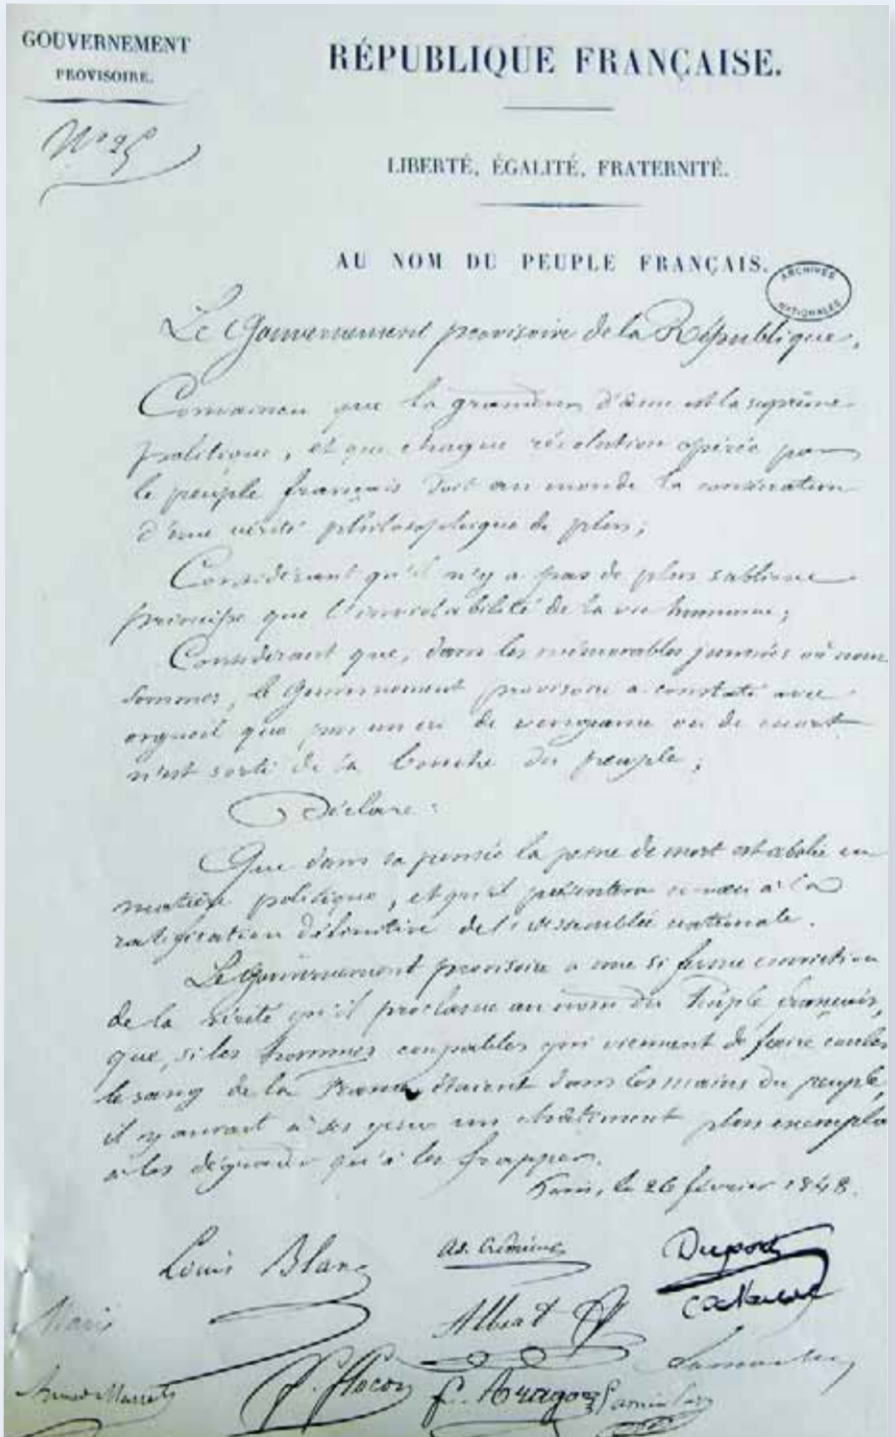 GOUVERNEMENT
PROVISOIRE.
RÉPUBLIQUE FRANÇAISE.
LIBERTÉ, ÉGALITÉ, FRATERNITÉ.
AU NOM DU PEUPLE FRANÇAIS.
ARCHIVES
NATIONALES
Le Gouvernement provisoire de la République,
Convaincu que la grandeur d'âme est la suprême
politique, et que chaque révolution opérée par
le peuple français doit au monde la consécration
d'une vérité philosophique de plus;
Considérant qu'il n'y a pas de plus sublime
principe que l'inviolabilité de la vie humaine;
Considérant que, dans les mémorables journées où nous
sommes, le Gouvernement provisoire a constaté avec
orgueil que pas un cri de vengeance ou de mort
n'est sorti de la bouche du peuple;
Déclare:
Que dans sa pensée la peine de mort est abolie en
matière politique, et qu'il présentera ce vœu à la
ratification définitive de l'assemblée nationale.
Le Gouvernement provisoire a une si ferme conviction
de la vérité qu'il proclame au nom du Peuple français,
que, si les hommes coupables qui viennent de faire couler
le sang de la France étaient dans les mains du peuple,
il y aurait à ses yeux un châtiment plus exemplaire
à les dégrader qu'à les frapper.
Paris, le 26 février 1848.
Louis Blanc
Ad. Crémieux
Dupont
Marie
Albert
Lamartine
Armand Marrast
F. Flocon
F. Arago